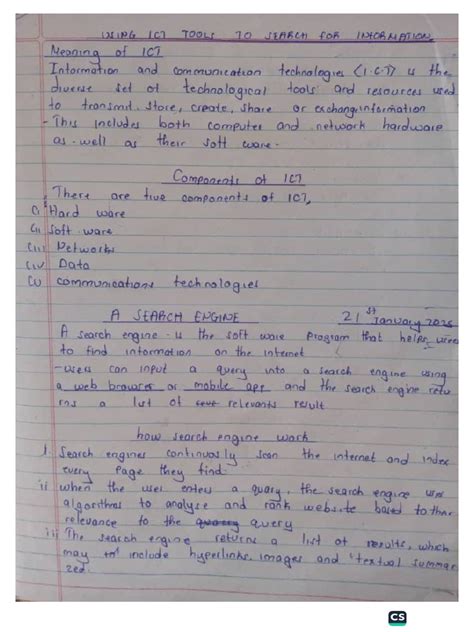 USING ICT TOOLS TO SEARCH FOR INFORMATION
Meaning of ICT
Information and communication technologies (I.C.T) is the
diverse set of technological tools and resources used
to transmit, store, create, share or exchange information
- This includes both computer and network hardware
as-well as their soft ware.
Components of ICT
There are five components of ICT,
(i) Hard ware
(ii) Soft ware
(iii) Networks
(iv) Data
(v) communications technologies
A SEARCH ENGINE 21st January 2025
A search engine is the soft ware program that helps users
to find information on the internet
-users can input a query into a search engine using
a web browser or mobile app and the search engine retu
rns a list of relevants result
how search engine work
i. Search engines continuosly scan the internet and index
every page they find.
ii when the user enters a quary, the search engine uses
algorithms to analyse and rank website based to their
relevance to the quary query
iii The search engine returns a list of results, which
may include hyperlinks, images and textual summar
zed.
CS